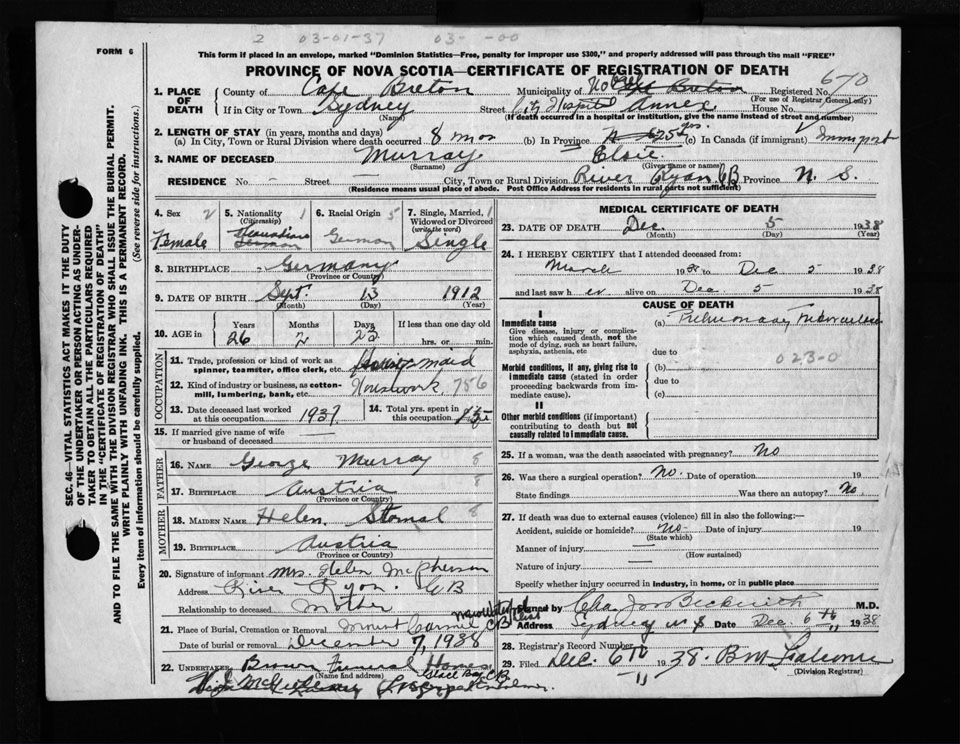 2 03-01-37 03- -00
FORM 6
This form if placed in an envelope, marked "Dominion Statistics—Free, penalty for improper use $300," and properly addressed will pass through the mail "FREE"
PROVINCE OF NOVA SCOTIA—CERTIFICATE OF REGISTRATION OF DEATH
670
1. PLACE OF DEATH
County of Cape Breton Municipality of Breton Registered No.
(For use of Registrar General only)
If in City or Town Sydney Street City Hospital Annex House No.
(Name) (If death occurred in a hospital or institution, give the name instead of street and number)
2. LENGTH OF STAY (in years, months and days)
(a) In City, Town or Rural Division where death occurred 8 mos (b) In Province 25 yrs. (c) In Canada (if immigrant) Immigrant
3. NAME OF DECEASED Murray Elsie
(Surname) (Given name or names)
RESIDENCE No. - Street — City, Town or Rural Division River Ryan CB Province N. S.
(Residence means usual place of abode. Post Office Address for residents in rural parts not sufficient)
4. Sex 2 Female
5. Nationality 1 (Citizenship) German
6. Racial Origin 5 German
7. Single, Married, Widowed or Divorced 1 (write the word) Single
8. BIRTHPLACE Germany
(Province or Country)
9. DATE OF BIRTH Sept. 13 1912
(Month) (Day) (Year)
10. AGE in Years Months Days If less than one day old
26 2 22 hrs. or min.
OCCUPATION
11. Trade, profession or kind of work as spinner, teamster, office clerk, etc. Housemaid
12. Kind of industry or business, as cotton-mill, lumbering, bank, etc. Housework 756
13. Date deceased last worked at this occupation 1937
14. Total yrs. spent in this occupation
15. If married give name of wife or husband of deceased —
FATHER
16. NAME George Murray 8
17. BIRTHPLACE Austria 8
(Province or Country)
MOTHER
18. MAIDEN NAME Helen 8
19. BIRTHPLACE Austria
(Province or Country)
20. Signature of informant Mrs. Helen McPherson
Address River Ryan CB
Relationship to deceased Mother
21. Place of Burial, Cremation or Removal Mount Carmel CB
Date of burial or removal December 7, 1938
22. UNDERTAKER Brown Funeral Homes
(Name and address) Glace Bay CB
MEDICAL CERTIFICATE OF DEATH
23. DATE OF DEATH Dec. 5 1938
(Month) (Day) (Year)
24. I HEREBY CERTIFY that I attended deceased from:
March 1938 to Dec 5 1938
and last saw her alive on Dec 5 1938
CAUSE OF DEATH
I
Immediate cause
Give disease, injury, or complication which caused death, not the mode of dying, such as heart failure, asphyxia, asthenia, etc
(a) Pulmonary Tuberculosis
due to
Morbid conditions, if any, giving rise to immediate cause (stated in order proceeding backwards from immediate cause).
023-0
(b)
due to
(c)
II
Other morbid conditions (if important) contributing to death but not causally related to immediate cause.
25. If a woman, was the death associated with pregnancy? No
26. Was there a surgical operation? No. Date of operation 19
State findings Was there an autopsy? No
27. If death was due to external causes (violence) fill in also the following:—
Accident, suicide or homicide? No- Date of injury 19
(State which)
Manner of injury —
(How sustained)
Nature of injury —
Specify whether injury occurred in industry, in home, or in public place
Signed by M.D.
Address Sydney N S Date Dec. 6th 1938
28. Registrar's Record Number
29. Filed Dec. 6th 1938. B M
(Division Registrar)
SEC. 46—VITAL STATISTICS ACT MAKES IT THE DUTY
OF THE UNDERTAKER OR PERSON ACTING AS UNDER-
TAKER TO OBTAIN ALL THE PARTICULARS REQUIRED
IN THE "CERTIFICATE OF REGISTRATION OF DEATH"
AND TO FILE THE SAME WITH THE DIVISION REGISTRAR WHO SHALL ISSUE THE BURIAL PERMIT.
WRITE PLAINLY WITH UNFADING INK. THIS IS A PERMANENT RECORD.
Every item of information should be carefully supplied. (See reverse side for instructions.)